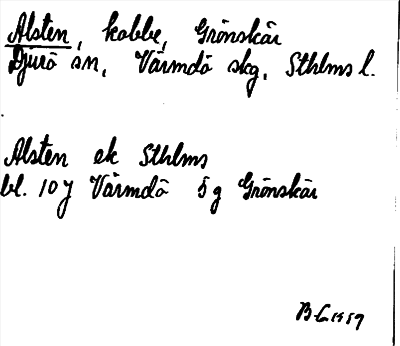 Alsten, kobbe, Grönskär
Djurö sn, Värmdö skg, Sthlms l.
Alsten ek Sthlms
bl. 10 J Värmdö 5 g Grönskär
B-C 1959